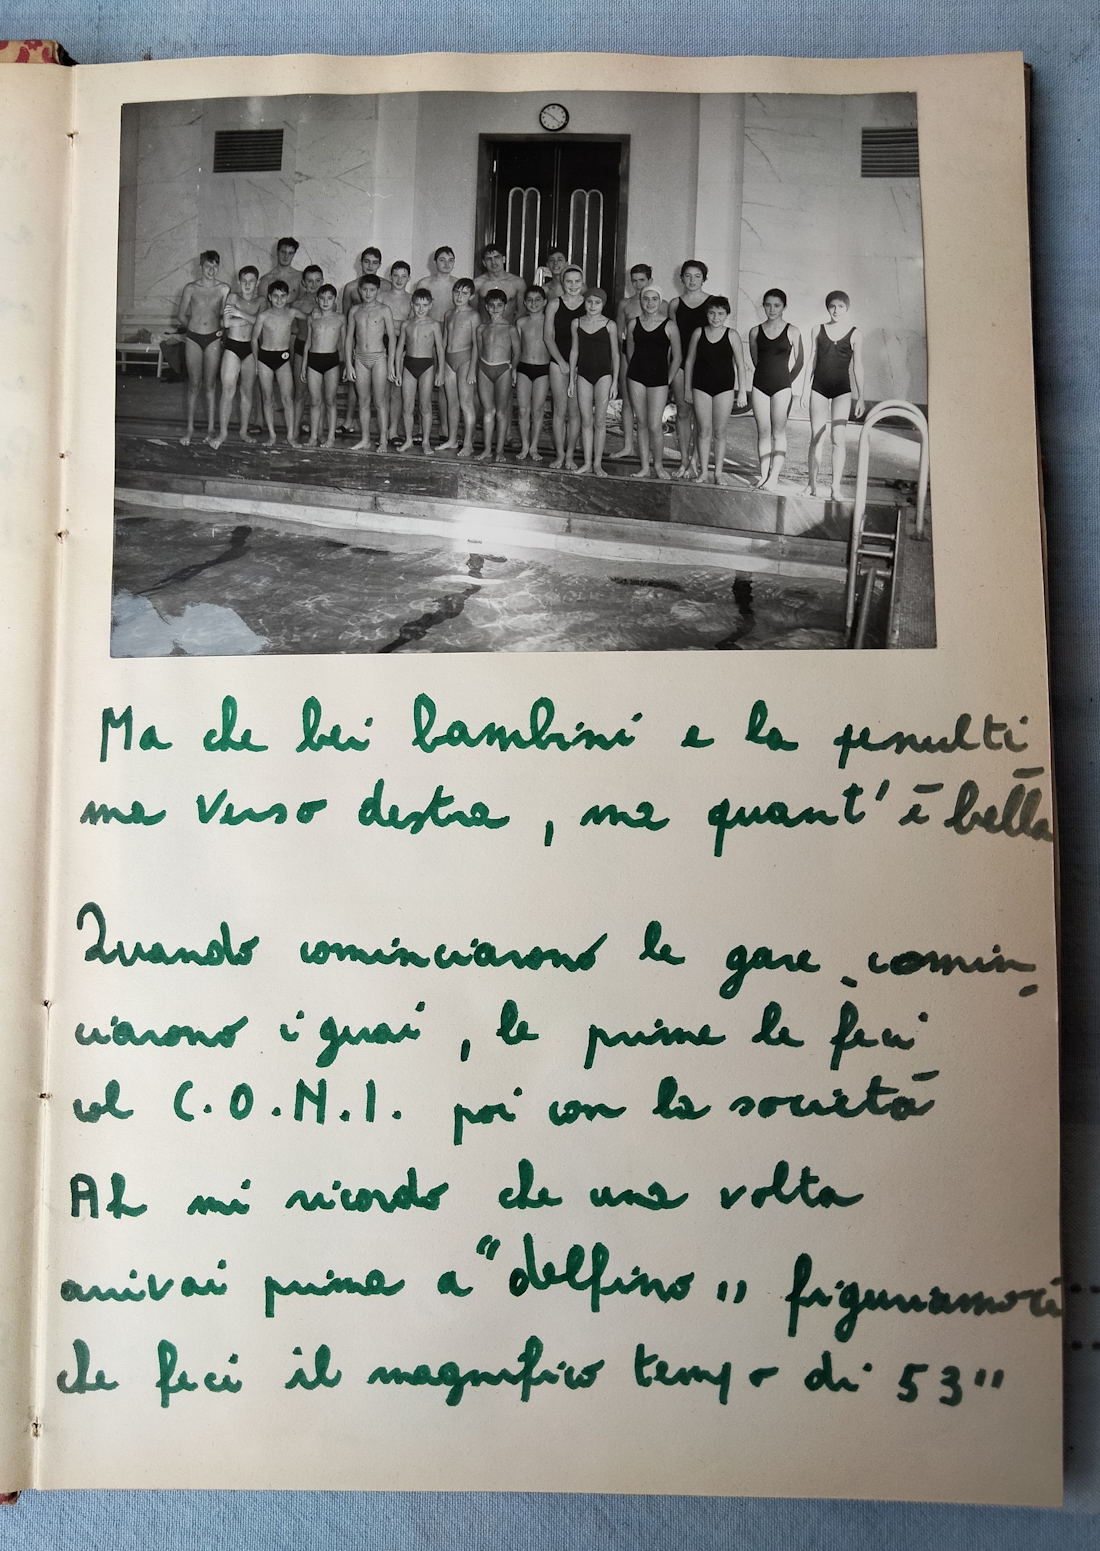 Ma che bei bambini e la penulti
ma verso destra, ma quant'è bella
Quando cominciarono le gare comin
ciarono i guai, le prime le feci
col C.O.N.I. poi con la società
Ah mi ricordo che una volta
arrivai prima a "delfino" figuriamoci
che feci il magnifico tempo di 53"